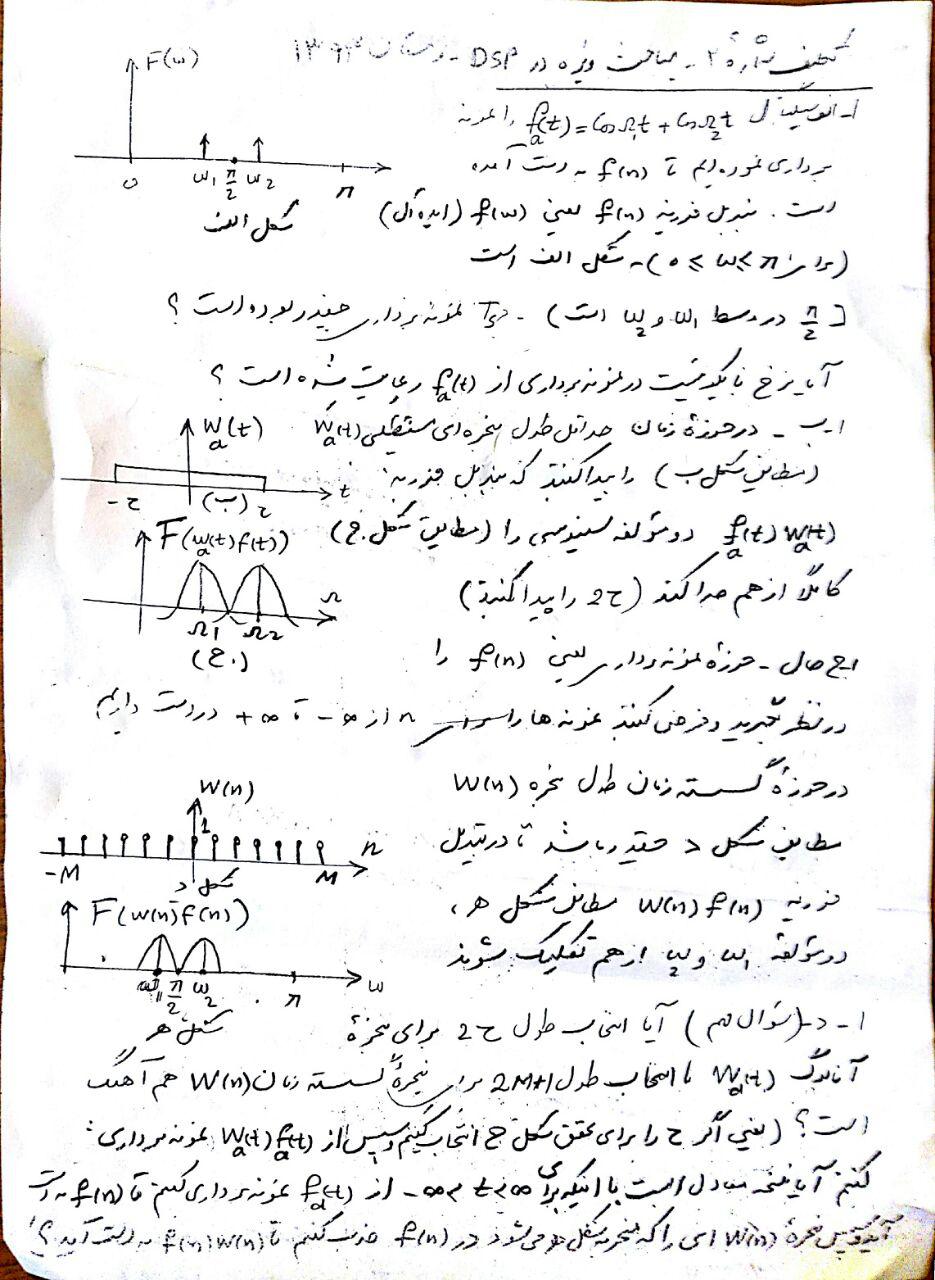 تکلیف شمارهٔ ۲ - مباحث ویژه در DSP - زمستان ۱۳۹۳
۱-الف سیگنال fₐ(t) = CosΩ₁t + CosΩ₂t را نمونه
برداری نموده ایم تا f(n) به دست آمده
است. تبدیل فوریه f(n) یعنی F(ω) (ایده آل)
(برای 0 ≤ ω ≤ π) به شکل الف است
[π/2 در وسط ω₁ و ω₂ است) - نمونه برداری چقدر بوده است ؟
آیا نرخ نایکوئیست در نمونه برداری از fₐ(t) رعایت شده است ؟
F(ω)
0 ω₁ π/2 ω₂ π
شکل الف
۱-ب - در حوزهٔ زمان حداقل طول پنجره ای مستطیلی Wₐ(t)
(مطابق شکل ب) را پیدا کنید که تبدیل فوریه
fₐ(t) Wₐ(t) دو مؤلفه سینوسی را (مطابق شکل ج)
کاملاً از هم جدا کند (2τ را پیدا کنید)
Wₐ(t)
-τ (ب) τ t
F(Wₐ(t)f(t))
Ω₁ Ω₂ Ω
(ج)
۱-ج حال - حوزهٔ نمونه برداری یعنی f(n) را
در نظر بگیرید و فرض کنید نمونه ها را n از ∞- تا ∞+ در دست داریم
در حوزهٔ گسسته زمان طول پنجره W(n)
مطابق شکل د چقدر باشد تا در تبدیل
فوریه W(n) f(n) مطابق شکل ه،
دو مؤلفه ω₁ و ω₂ از هم تفکیک شوند
W(n)
1
-M M n
شکل د
F(W(n)f(n))
ω₁ π/2 ω₂ π ω
شکل ه
۱-د-(سؤال مهم) آیا انتخاب طول 2τ برای پنجرهٔ
آنالوگ Wₐ(t) با انتخاب طول 2M+1 برای پنجرهٔ گسسته زمان W(n) هم آهنگ
است ؟ (یعنی اگر τ را برای تحقق شکل ج انتخاب کنیم و سپس از Wₐ(t) fₐ(t) نمونه برداری
کنیم آیا نتیجه معادل است با اینکه برای -∞ < t < ∞ از fₐ(t) نمونه برداری کنیم تا f(n) به دست
آید و سپس پنجرهٔ W(n) ای را که منجر به شکل ه می شود در f(n) ضرب کنیم تا f(n) W(n) به دست آید ؟)